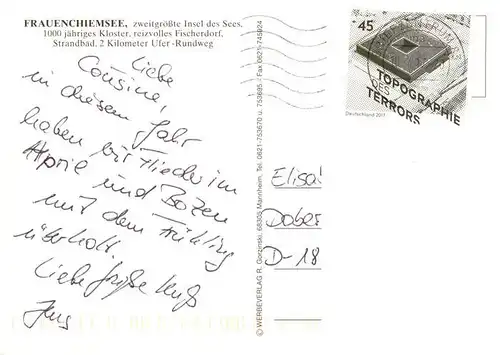 FRAUENCHIEMSEE, zweitgrößte Insel des Sees,
1000 jähriges Kloster, reizvolles Fischerdorf,
Strandbad, 2 Kilometer Ufer-Rundweg
Liebe
Cousine,
in diesem Jahr
haben wir Flieder im
April und Bozen
mit dem Frühling
überholt.
Liebe Grüße Kuß
Jens
© WERBEVERLAG R. Gorzinski, 68305 Mannheim, Tel. 0621-753670 u. 753685 - Fax 0621-745924
45
TOPOGRAPHIE
DES
TERRORS
Deutschland 2011
Elisa
Dober
D-18